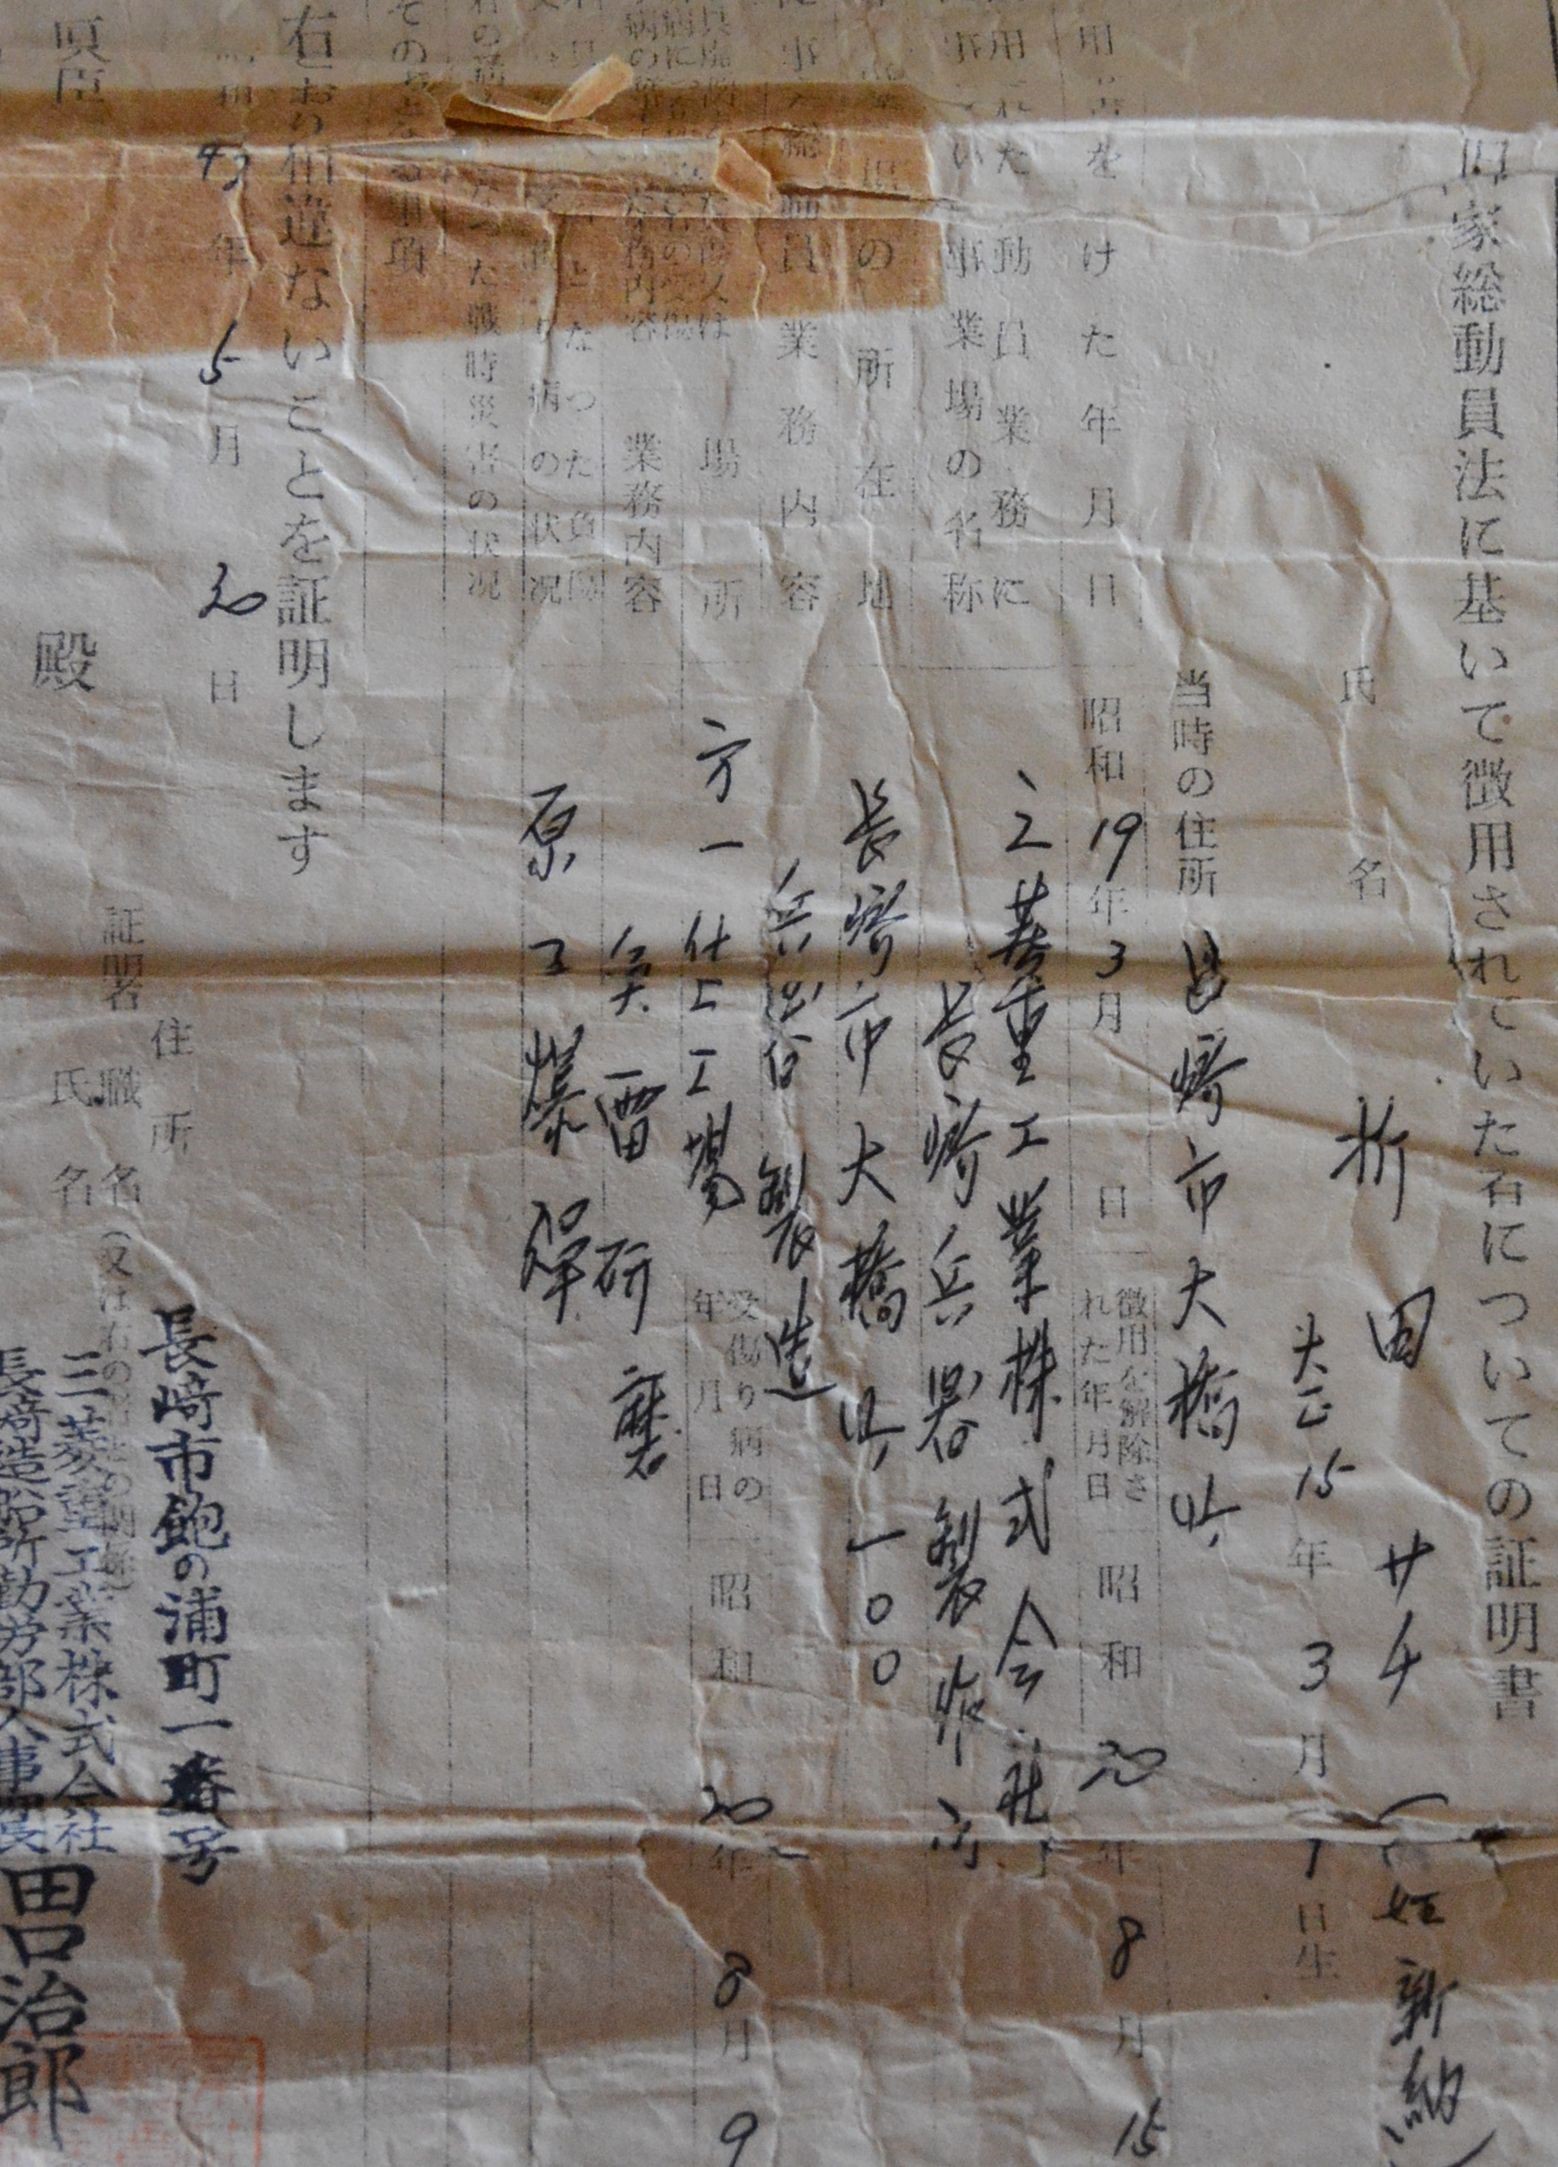 旧国家総動員法に基いて徴用されていた者についての証明書
氏名 折田サチ(旧姓新納)
大正15年3月1日生
当時の住所 長崎市大橋町
用 書を けた年月日 昭和19年3月 日
徴用を解除された年月日 昭和20年8月15
用 れた 動員業務に
事業場の名称
三菱重工業株式会社
長崎兵器製作所
の所在地 長崎市大橋町一〇〇
総動員業務内容 兵器製造
場所 方一仕上工場
受傷り病の年月日 昭和20年8月9
業務内容 魚雷研磨
となつた負傷
り病の状況
原子爆弾
つた戦時災害の状況
その 事項
右とおり相違ないことを証明します
昭和43年5月20日
証明者
住所 長崎市飽の浦町一番号
職名
三菱重工業株式会社
長崎造船所勤労部人事課長
氏名 田口治郎
殿